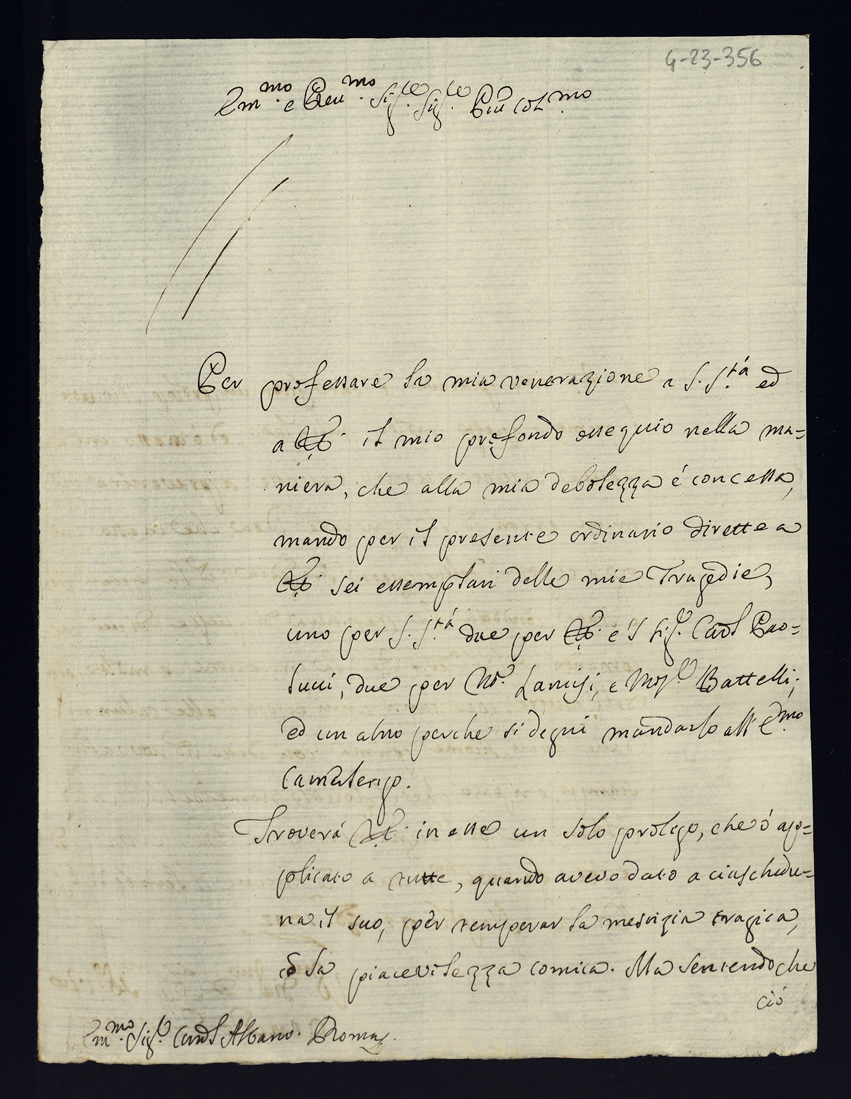 4-23-356
Em.mo e Reu.mo Sig.re Sig.re Prõn Col.mo
Per professare la mia venerazione a S. S.tá ed
a V.E. il mio profondo ossequio nella ma=
niera, che alla mia debolezza é concessa,
mando per il presente ordinario dirette a
V.E. sei essemplari delle mie Tragedie,
uno per S. S.tá due per V.E. e 'l Sig.r Card Pao=
lucci, due per M.r Lancisi, e Mos.r Battelli;
ed un altro perche si degni mandarlo all' E.mo
Camerlengo.
Troverá V.E. in esse un solo prologo, che ó ap=
plicato a tutte, quando avevo dato a ciaschedu=
na il suo, per temperar la mestizia tragica,
có la piacevolezza comica. Ma sentendo che
ció
Em.mo Sig.r Card Albano. Roma.